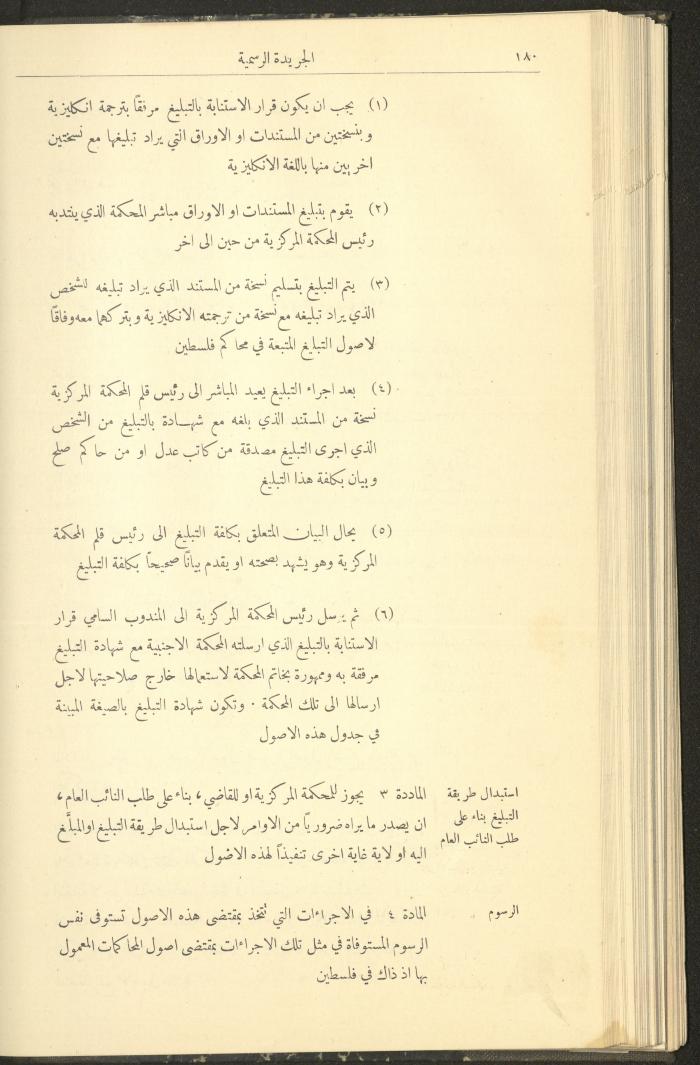 ١٨٠
الجريدة الرسمية
(١) يجب ان يكون قرار الاستنابة بالتبليغ مرفقاً بترجمة انكليزية
وبنسختين من المستندات او الاوراق التي يراد تبليغها مع نسختين
اخريين منها باللغة الانكليزية
(٢) يقوم بتبليغ المستندات او الاوراق مباشر المحكمة الذي ينتدبه
رئيس المحكمة المركزية من حين الى اخر
(٣) يتم التبليغ بتسليم نسخة من المستند الذي يراد تبليغه للشخص
الذي يراد تبليغه مع نسخة من ترجمته الانكليزية وبتركهما معه وفاقًا
لاصول التبليغ المتبعة في محاكم فلسطين
(٤) بعد اجراء التبليغ يعيد المباشر الى رئيس قلم المحكمة المركزية
نسخة من المستند الذي بلغه مع شهادة بالتبليغ من الشخص
الذي اجرى التبليغ مصدقة من كاتب عدل او من حاكم صلح
وبيان بكلفة هذا التبليغ
(٥) يحال البيان المتعلق بكلفة التبليغ الى رئيس قلم المحكمة
المركزية وهو يشهد بصحته او يقدم بيانًا صحيحًا بكلفة التبليغ
(٦) ثم يرسل رئيس المحكمة المركزية الى المندوب السامي قرار
الاستنابة بالتبليغ الذي ارسلته المحكمة الاجنبية مع شهادة التبليغ
مرفقة به وممهورة بخاتم المحكمة لاستعمالها خارج صلاحيتها لاجل
ارسالها الى تلك المحكمة . وتكون شهادة التبليغ بالصيغة المبينة
في جدول هذه الاصول
استبدال طريقة
التبليغ بناء على
طلب النائب العام
الماددة ٣ يجوز للمحكمة المركزية او للقاضي، بناء على طلب النائب العام،
ان يصدر ما يراه ضروريًا من الاوامر لاجل استبدال طريقة التبليغ او المبلَّغ
اليه او لاية غاية اخرى تنفيذاً لهذه الاصول
الرسوم
المادة ٤ في الاجراءات التي تتخذ بمقتضى هذه الاصول تستوفى نفس
الرسوم المستوفاة في مثل تلك الاجراءات بمقتضى اصول المحاكمات المعمول
بها اذ ذاك في فلسطين